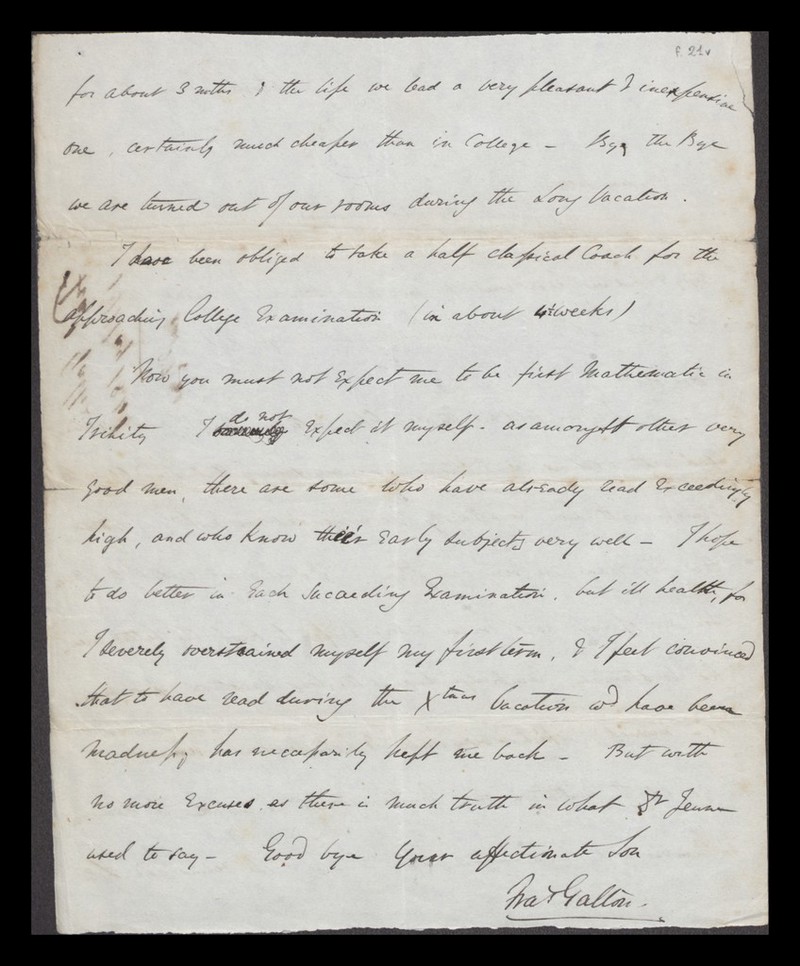 f. 21v
for about 3 mths & the life we lead a very pleasant & inexpensive
one, certainly much cheaper than in College – Bye the Bye
we are turned out of our rooms during the Long Vacation.
I have been obliged to take a half classical Coach for the
approaching College Examination (in about 4 weeks)
Now you must not expect me to be first Mathematic in
Trinity I do not expect it myself – as amongst other very
good men, there are some who have already read exceedingly
high, and who know their early subjects very well – I hope
to do better in each succeeding Examination, but ill health, for
I severely overstrained myself my first term, & I feel convinced
that to have read during the Xtmas Vacation wd have been
madness, has necessarily kept me back – But with
no more Excuses as there is much truth in what Dr Jeune
used to say – Good bye Your affectionate Son
Fras Galton.